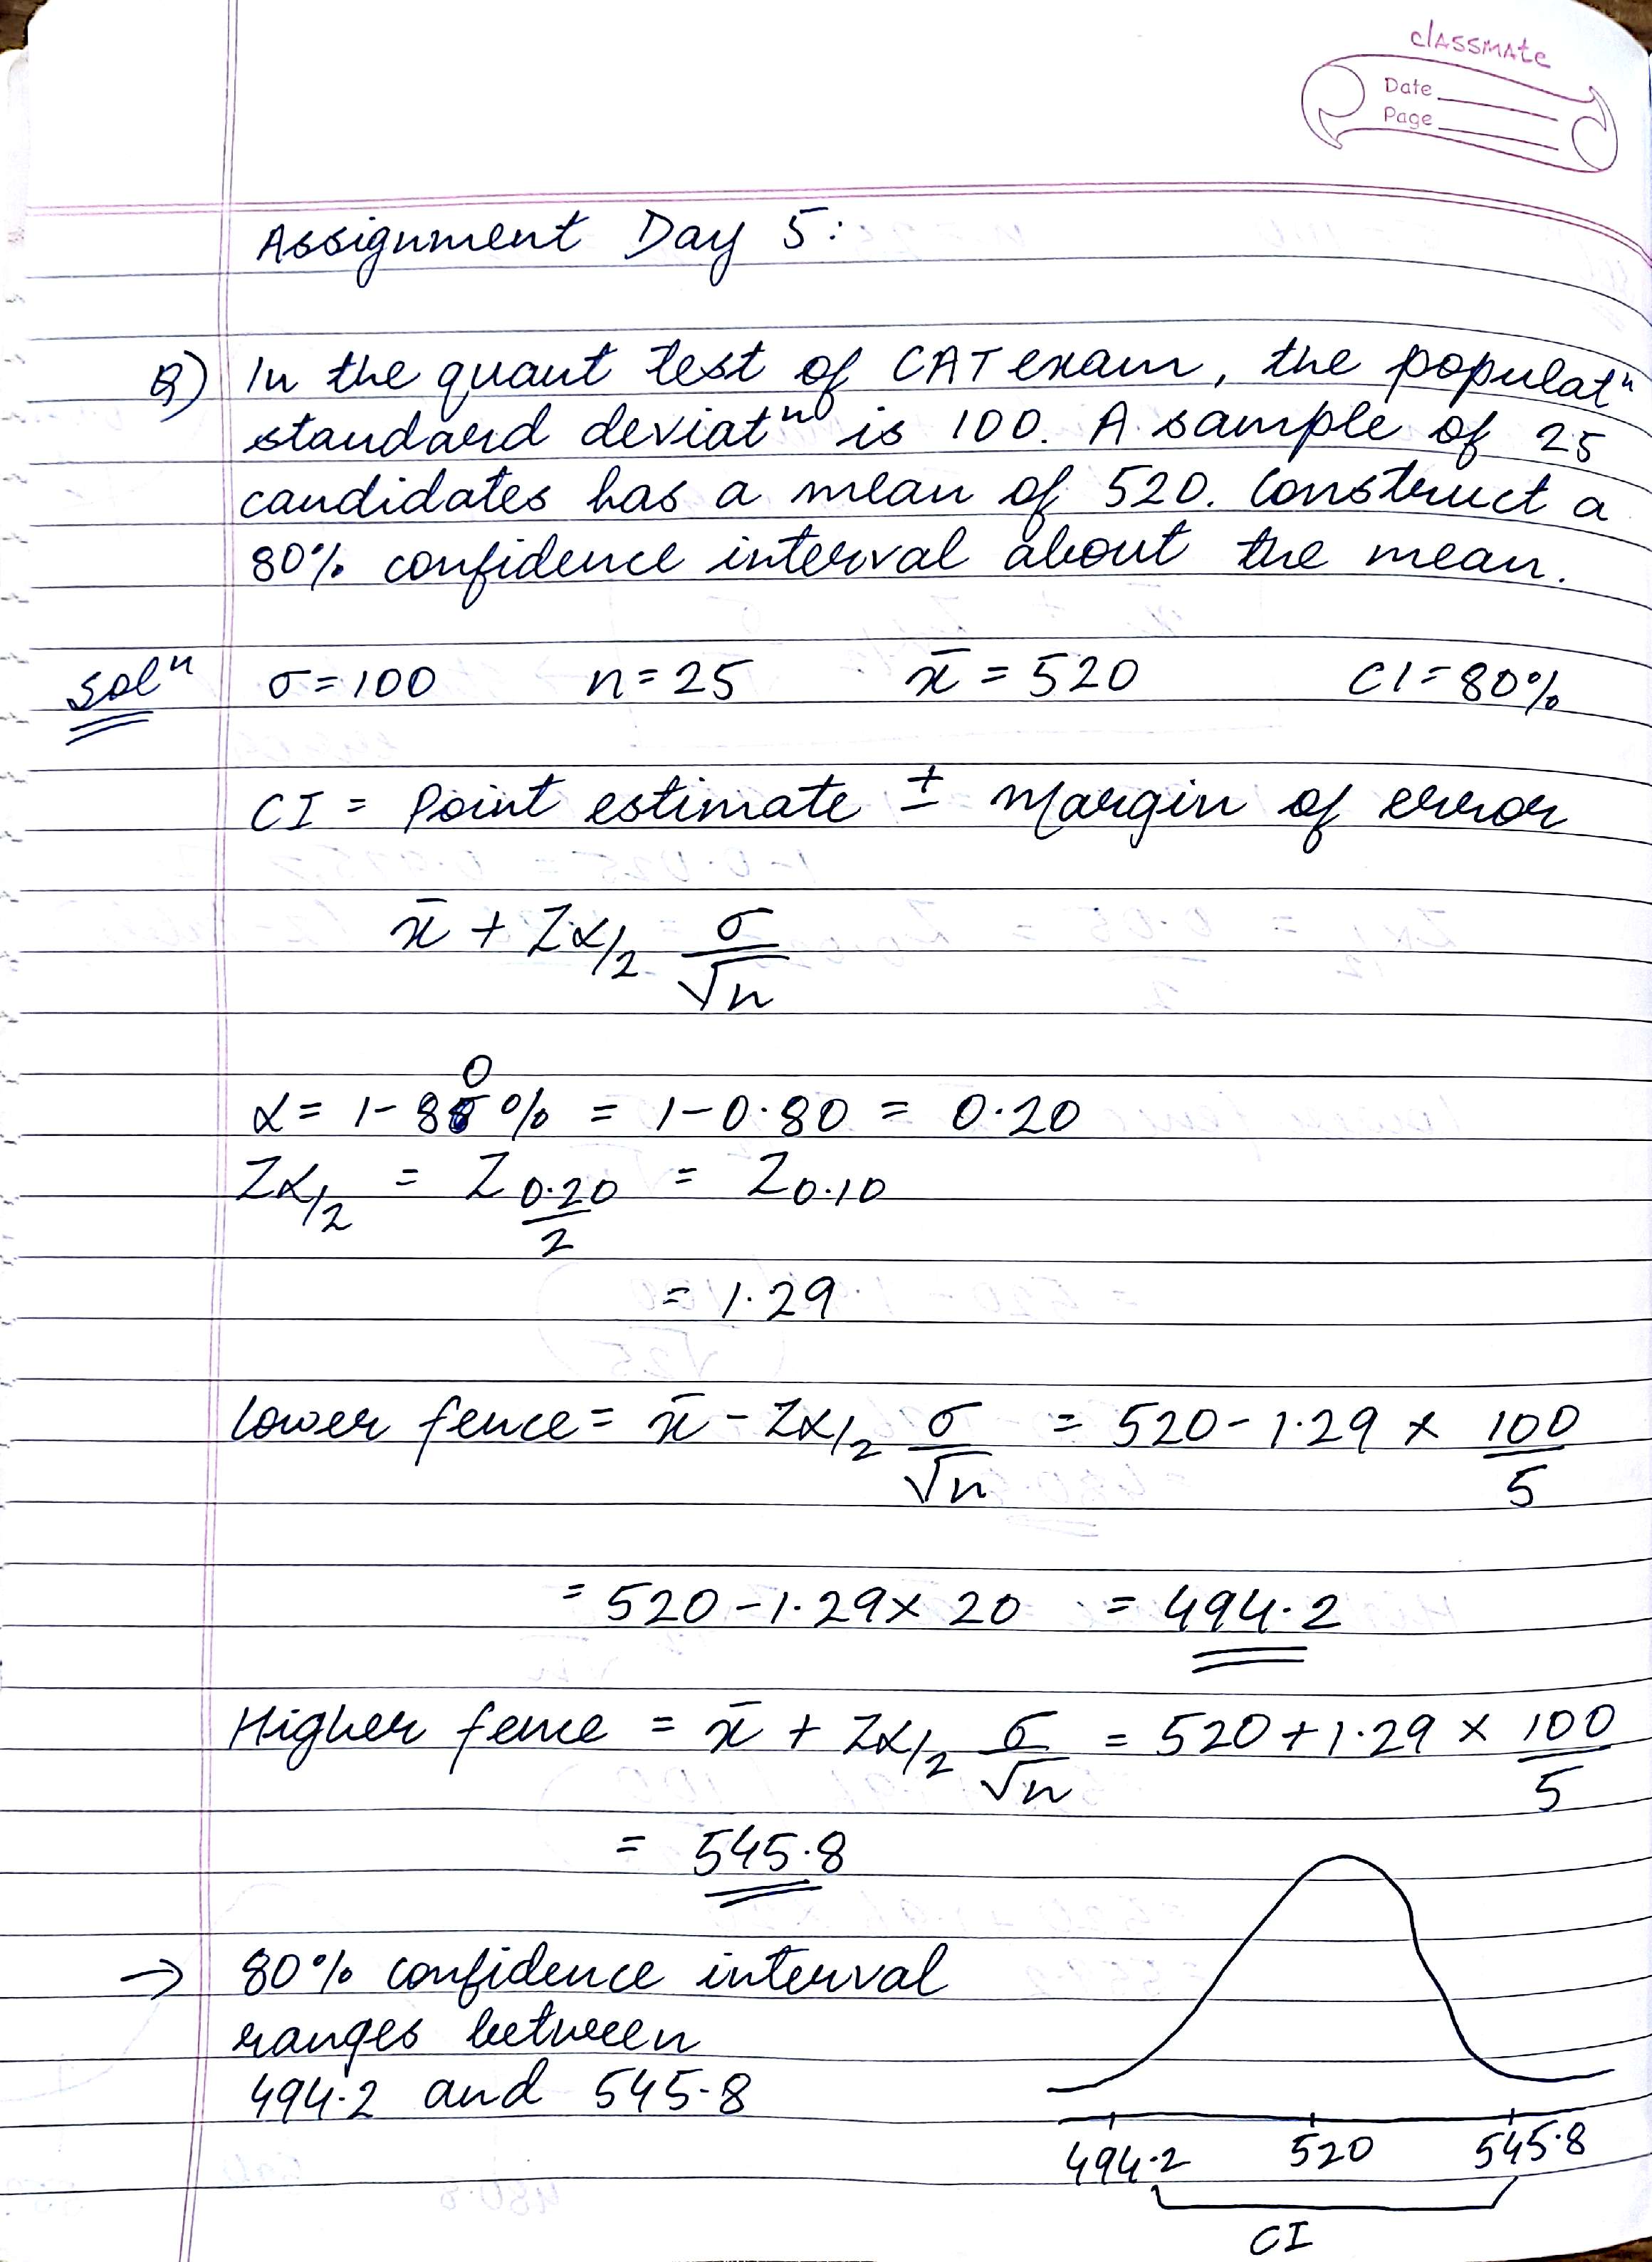 classmate
Date
Page
Assignment Day 5:
Q) In the quant test of CAT exam, the populatⁿ
standard deviatⁿ is 100. A sample of 25
candidates has a mean of 520. Construct a
80% confidence interval about the mean.
Solⁿ σ=100 n=25 x̄=520 CI=80%
CI = Point estimate ± Margin of error
x̄ + Zα/2 σ/√n
0
α= 1-88% = 1-0.80 = 0.20
Zα/2 = Z0.20/2 = Z0.10
= 1.29
Lower fence = x̄ - Zα/2 σ/√n = 520-1.29 × 100/5
= 520-1.29×20 = 494.2
Higher fence = x̄ + Zα/2 σ/√n = 520+1.29 × 100/5
= 545.8
→ 80% confidence interval
ranges between
494.2 and 545.8
494.2 520 545.8
CI